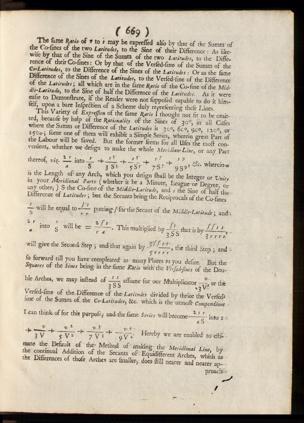 ( 669 )
The same Ratio of r to s may be expressed also by that of the Summ of
the Co-sines of the two Latitudes, to the Sine of their Difference: As like-
wise by that of the Sine of the Summ of the two Latitudes, to the Diffe-
rence of their Co-sines: Or by that of the Versed-sine of the Summ of the
Co-Latitudes, to the Difference of the Sines of the Latitudes: Or as the same
Difference of the Sines of the Latitudes, to the Versed-sine of the Difference
of the Latitudes; all which are in the same Ratio of the Co-sine of the Mid-
dle-Latitude, to the Sine of half the Difference of the Latitudes. As it were
easie to Demonstrate, if the Reader were not supposed capable to do it him-
self, upon a bare Inspection of a Scheme duly representing these Lines.
This Variety of Expression of the same Ratio I thought not fit to be omit-
ted, because by help of the Rationality of the Sine of 30°, in all Cases
where the Summ or Difference of the Latitudes is 30°, 60°, 90°, 120°, or
150°; some one of them will exhibit a Simple Series, wherein great Part of
the Labour will be saved. But the former seems for all Uses the most con-
venient, whether we design to make the whole Meridian-Line, or any Part
thereof, viz.
is the Length of any Arch, which you design shall be the Integer or Unity
in your Meridional Parts (whether it be a Minute, League or Degree, or
any other,) S the Co-sine of the Middle-Latitude, and s the Sine of half the
Difference of Latitudes; but the Secants being the Reciprocals of the Co-sines
will be equal to putting f for the Secant of the Middle-Latitude; and
into will be This multiplied by that is by
will give the Second Step; and that again by the third Step; and
so forward till you have compleated as many Places as you desire. But the
Squares of the Sines being in the same Ratio with the Versed-sines of the Dou-
ble Arches, we may instead of assume for our Multiplicator or the
Versed-sine of the Difference of the Latitudes divided by thrice the Versed-
sine of the Summ of the Co-Latitudes, &c. which is the utmost Compendium
I can think of for this purpose; and the same Series will become
Hereby we are enabled to esti-
mate the Default of the Method of making the Meridional Line, by
the continual Addition of the Secants of Equidifferent Arches, which as
the Differences of those Arches are smaller, does still nearer and nearer ap-
proach